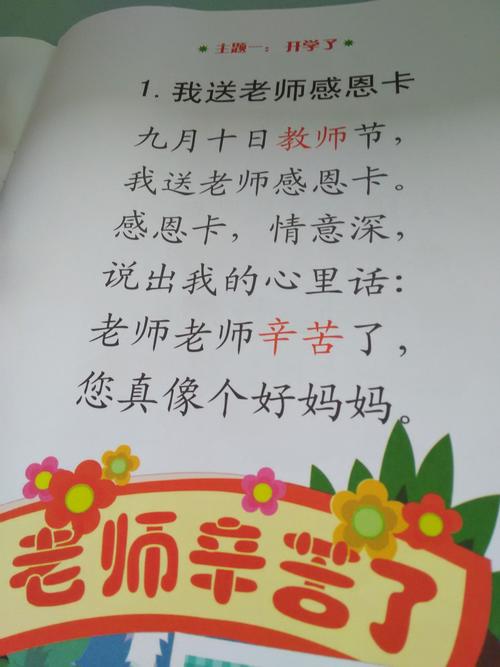 主题一：开学了
1. 我送老师感恩卡
九月十日教师节，
我送老师感恩卡。
感恩卡，情意深，
说出我的心里话：
老师老师辛苦了，
您真像个好妈妈。
老师辛苦了